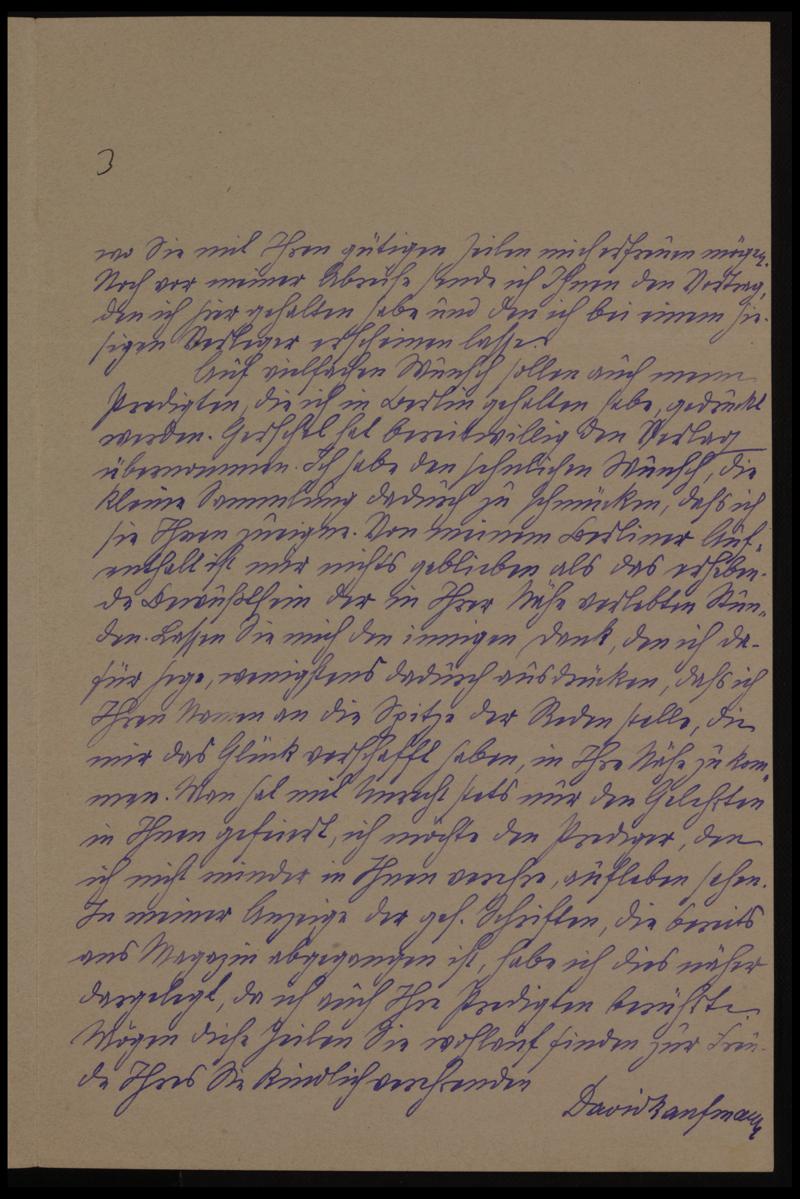 3
wo Sie mit Ihren gütigen Zeilen mich erfreuen mögen.
Noch vor meiner Abreise sende ich Ihnen den Vortrag,
den ich hier gehalten habe und den ich bei einem hie-
sigen Verleger erscheinen lasse.
Auf vielfachen Wunsch sollen auch meine
Predigten, die ich in Berlin gehalten habe, gedruckt
werden. Gerschel hat bereitwillig den Verlag
übernommen. Ich habe den sehnlichen Wunsch, die
kleine Sammlung dadurch zu schmücken, daß ich
sie Ihnen zueigne. Von meinem Berliner Auf-
enthalt ist mir nichts geblieben als das erheben-
de Bewußtsein der in Ihrer Nähe verlebten Stun-
den. Lassen Sie mich den innigen Dank, den ich da-
für hege, wenigstens dadurch ausdrücken, daß ich
Ihren Namen an die Spitze der Reden stelle, die
mir das Glück verschafft haben, in Ihre Nähe zu kom-
men. Man hat mit Unrecht stets nur den Gelehrten
in Ihnen gefeiert, ich möchte den Prediger, den
ich nicht minder in Ihnen verehre, aufleben sehen.
In meiner Anzeige der ges. Schriften, die bereits
ans Magazin abgegangen ist, habe ich dies näher
dargelegt, da ich auch Ihre Predigten berührte.
Mögen diese Zeilen Sie wohlauf finden zur Freu-
de Ihres Sie kindlich verehrenden
David Kaufmann